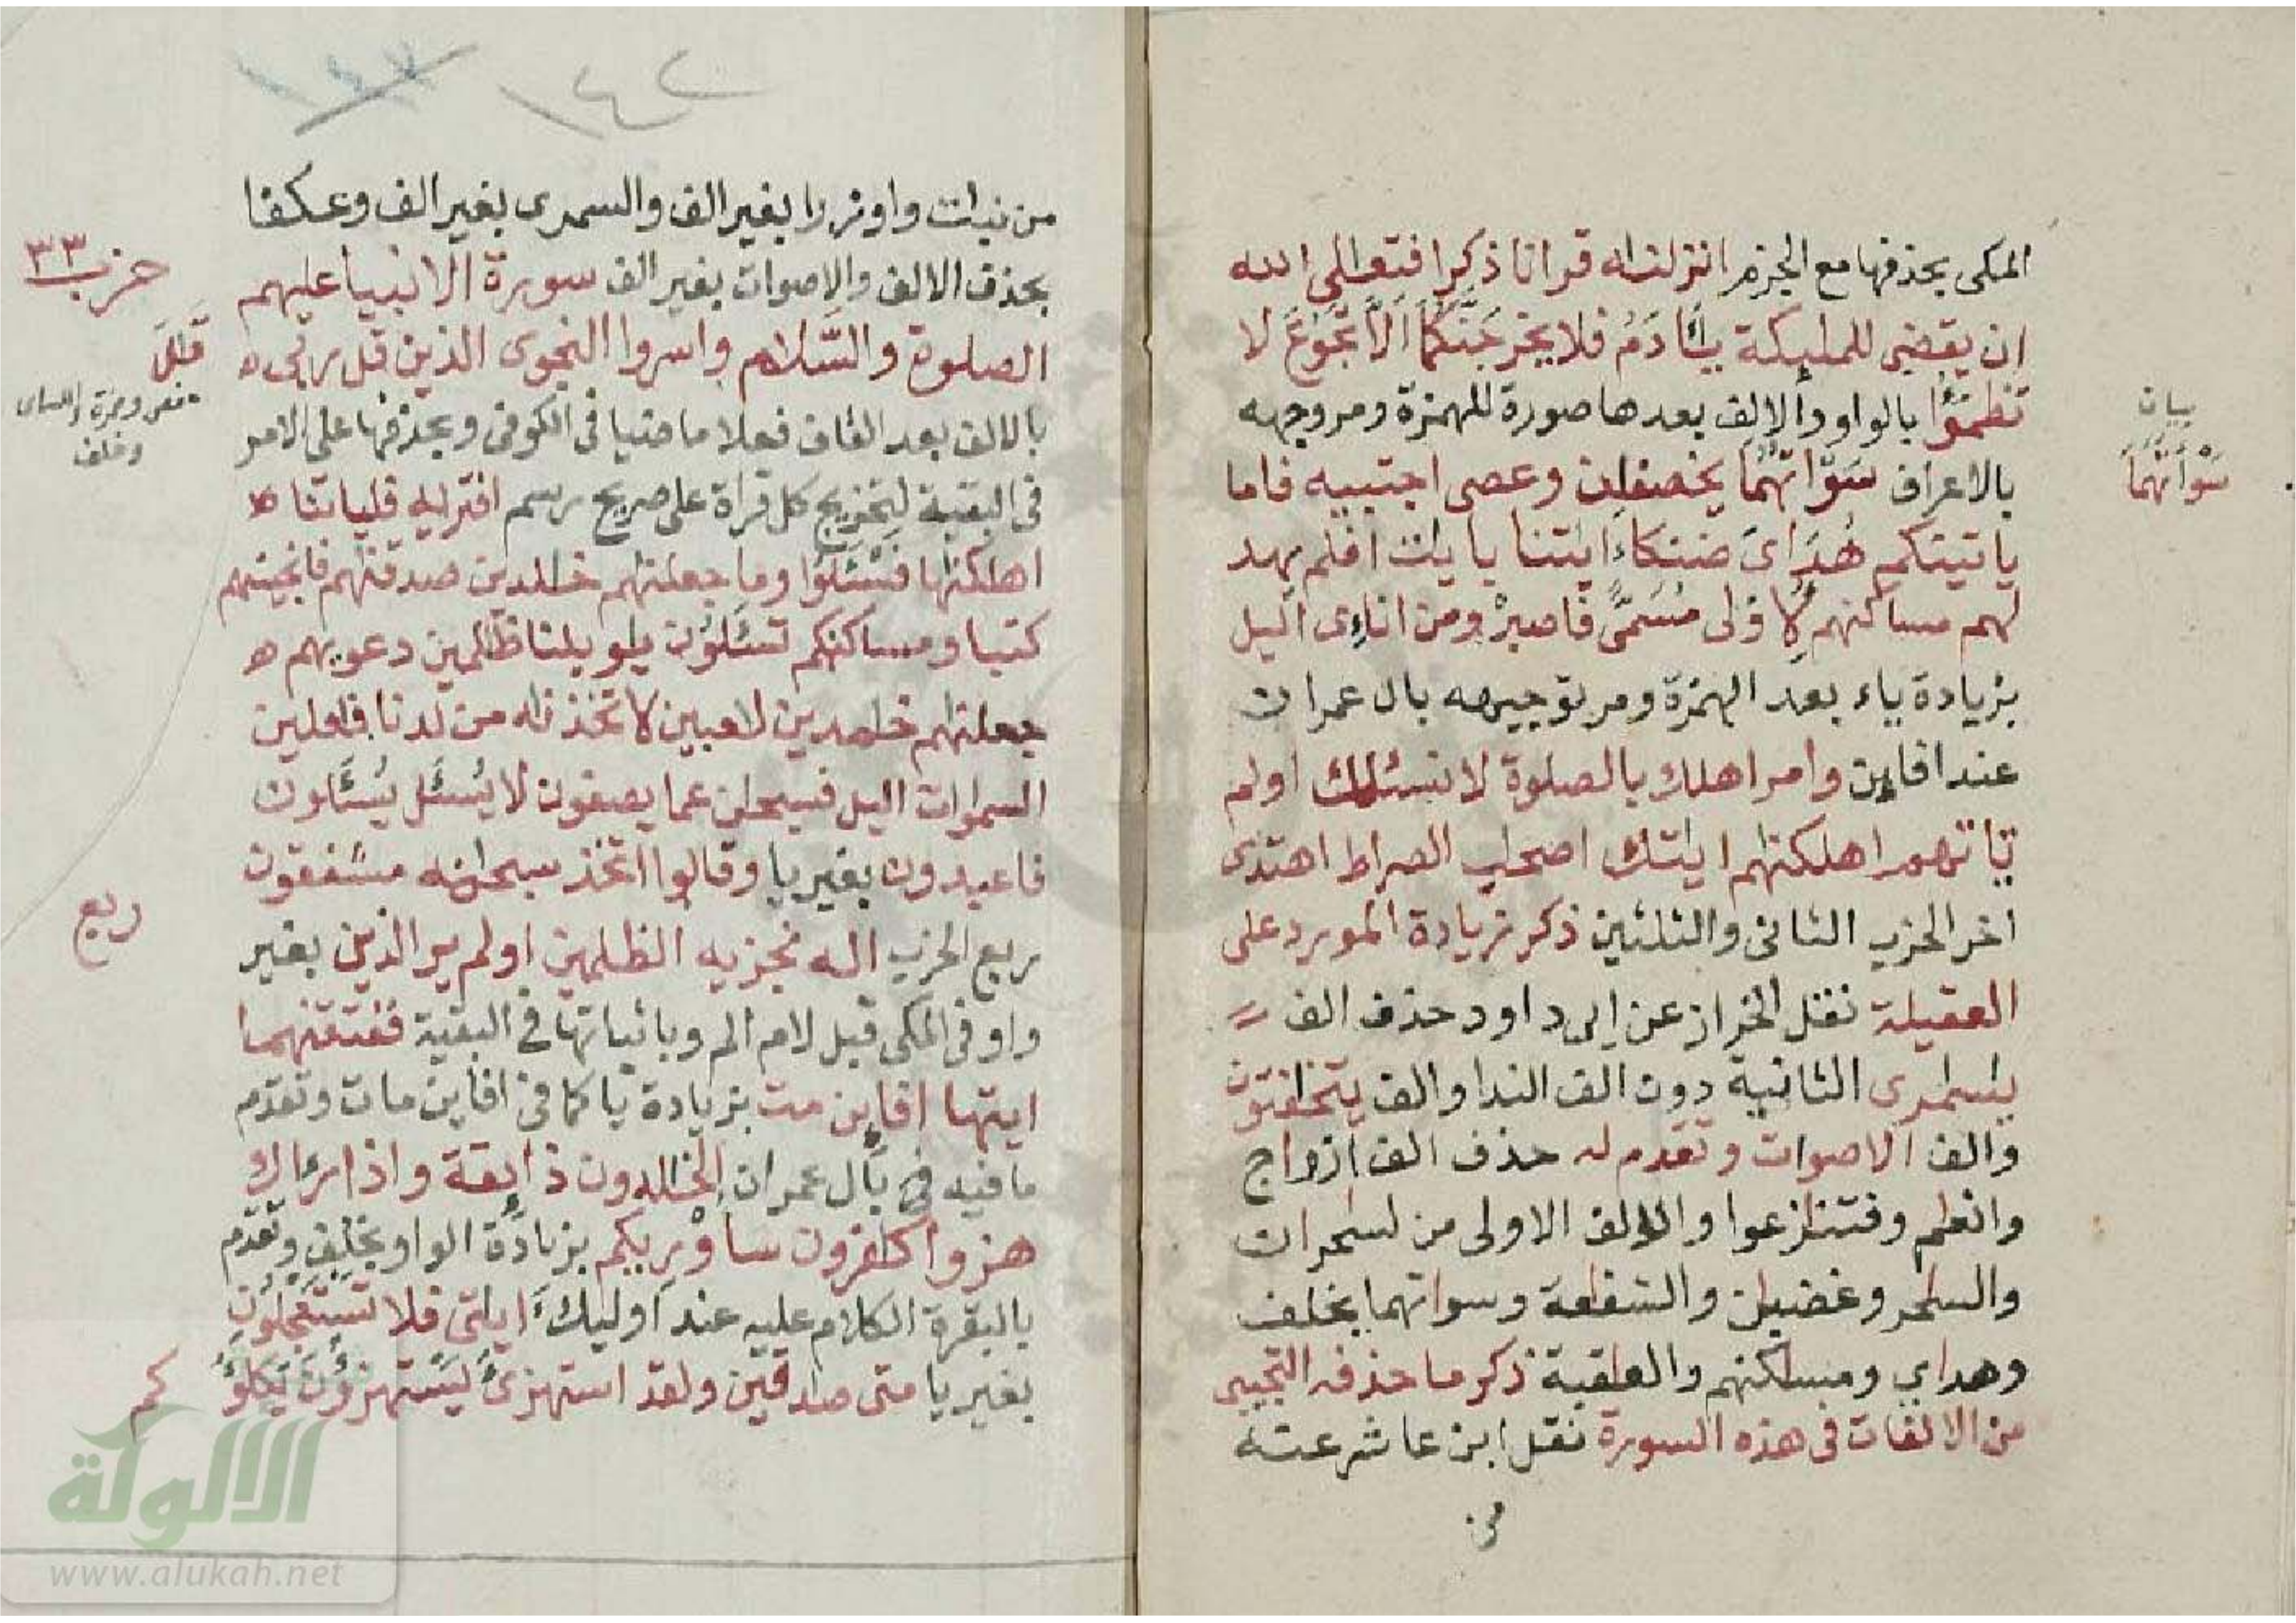 المكى بحذفها مع الجزم انزلنه قرانا ذكرا فتعلى الله
ان يقضى للمليكة يـادم فلا يخرجنكما الا تجوع لا
تظمؤا بالواو والالف بعدها صورة للهمزة ومر وجهه
بالاعراف سواتهما يخصفان وعصى اجتبيه فاما
ياتينكم هداى ضنكا ءايتنا بايت افلم يهد
لهم مساكنهم لاولى مسمى فاصبر ومن اناءى اليل
بزيادة ياء بعد الهمزة ومر توجيهه بال عمران
عند افاين وامر اهلك بالصلوة لا نسئلك اولم
تاتهم اهلكنهم ايتك اصحب الصراط اهتدى
اخر الحزب الثانى والثلثين ذكر زيادة المورد على
العقيلة نقل الخراز عن ابى داود حذف الف
يسمرى الثانية دون الف الندا والف يتخافتون
والف الاصوات وتقدم له حذف الف ازواج
وانعام وفتنازعوا والالف الاولى من لسحران
والساحر وغضبان والشفاعة وسواتهما بخلف
وهداي ومساكنهم والعاقبة ذكر ما حذفه التجيبى
من الالفات فى هذه السورة نقل ابن عاشر عنه
من
بيان
سوأتهما
١٤٢
من نبات واوزرا بغير الف والسمرى بغير الف وعكفا
بحذف الالف والاصوات بغير الف سورة الانبيا عليهم
الصلوة والسلام واسروا النجوى الذين قل ربى
بالالف بعد القاف فعلا ماضيا فى الكوفى وبحذفها على الامر
فى البقية لتخريج كل قراة على صريح رسم افتريه فلياتنا
اهلكنها فسئلوا وما جعلنهم خلدين صدقنهم فانجينهم
كتبا ومساكنكم تسئلون يلويلنا ظلمين دعويهم
جعلنهم خلمدين لاعبين لا تخذنه من لدنا فاعلين
السموات اليل فسبحن عما يصفون لا يسئل يسئلون
فاعبدون بغير يا وقالوا اتخذ سبحنه مشفقون
ربع الحزب اله نجزيه الظلمين اولم ير الذين بغير
واو فى المكى قبل لام الم وباثباتها فى البقية ففتقنهما
ايتها افاين مت بزيادة يا كما فى افاين مات وتقدم
ما فيه فى بال عمران الخلدون ذايقة واذا رءاك
هزوا كافرون ساوريكم بزيادة الواو بخلف وتقدم
بالبقرة الكلام عليه عند اوليك ءايتى فلا تستعجلون
بغير يا متى صادقين ولقد استهزئ يستهزؤن يكلؤ
كم
حزب ٣٣
قـل
حفص وحمزة والكساى
وخلف
ربع
الالوكة
www.alukah.net